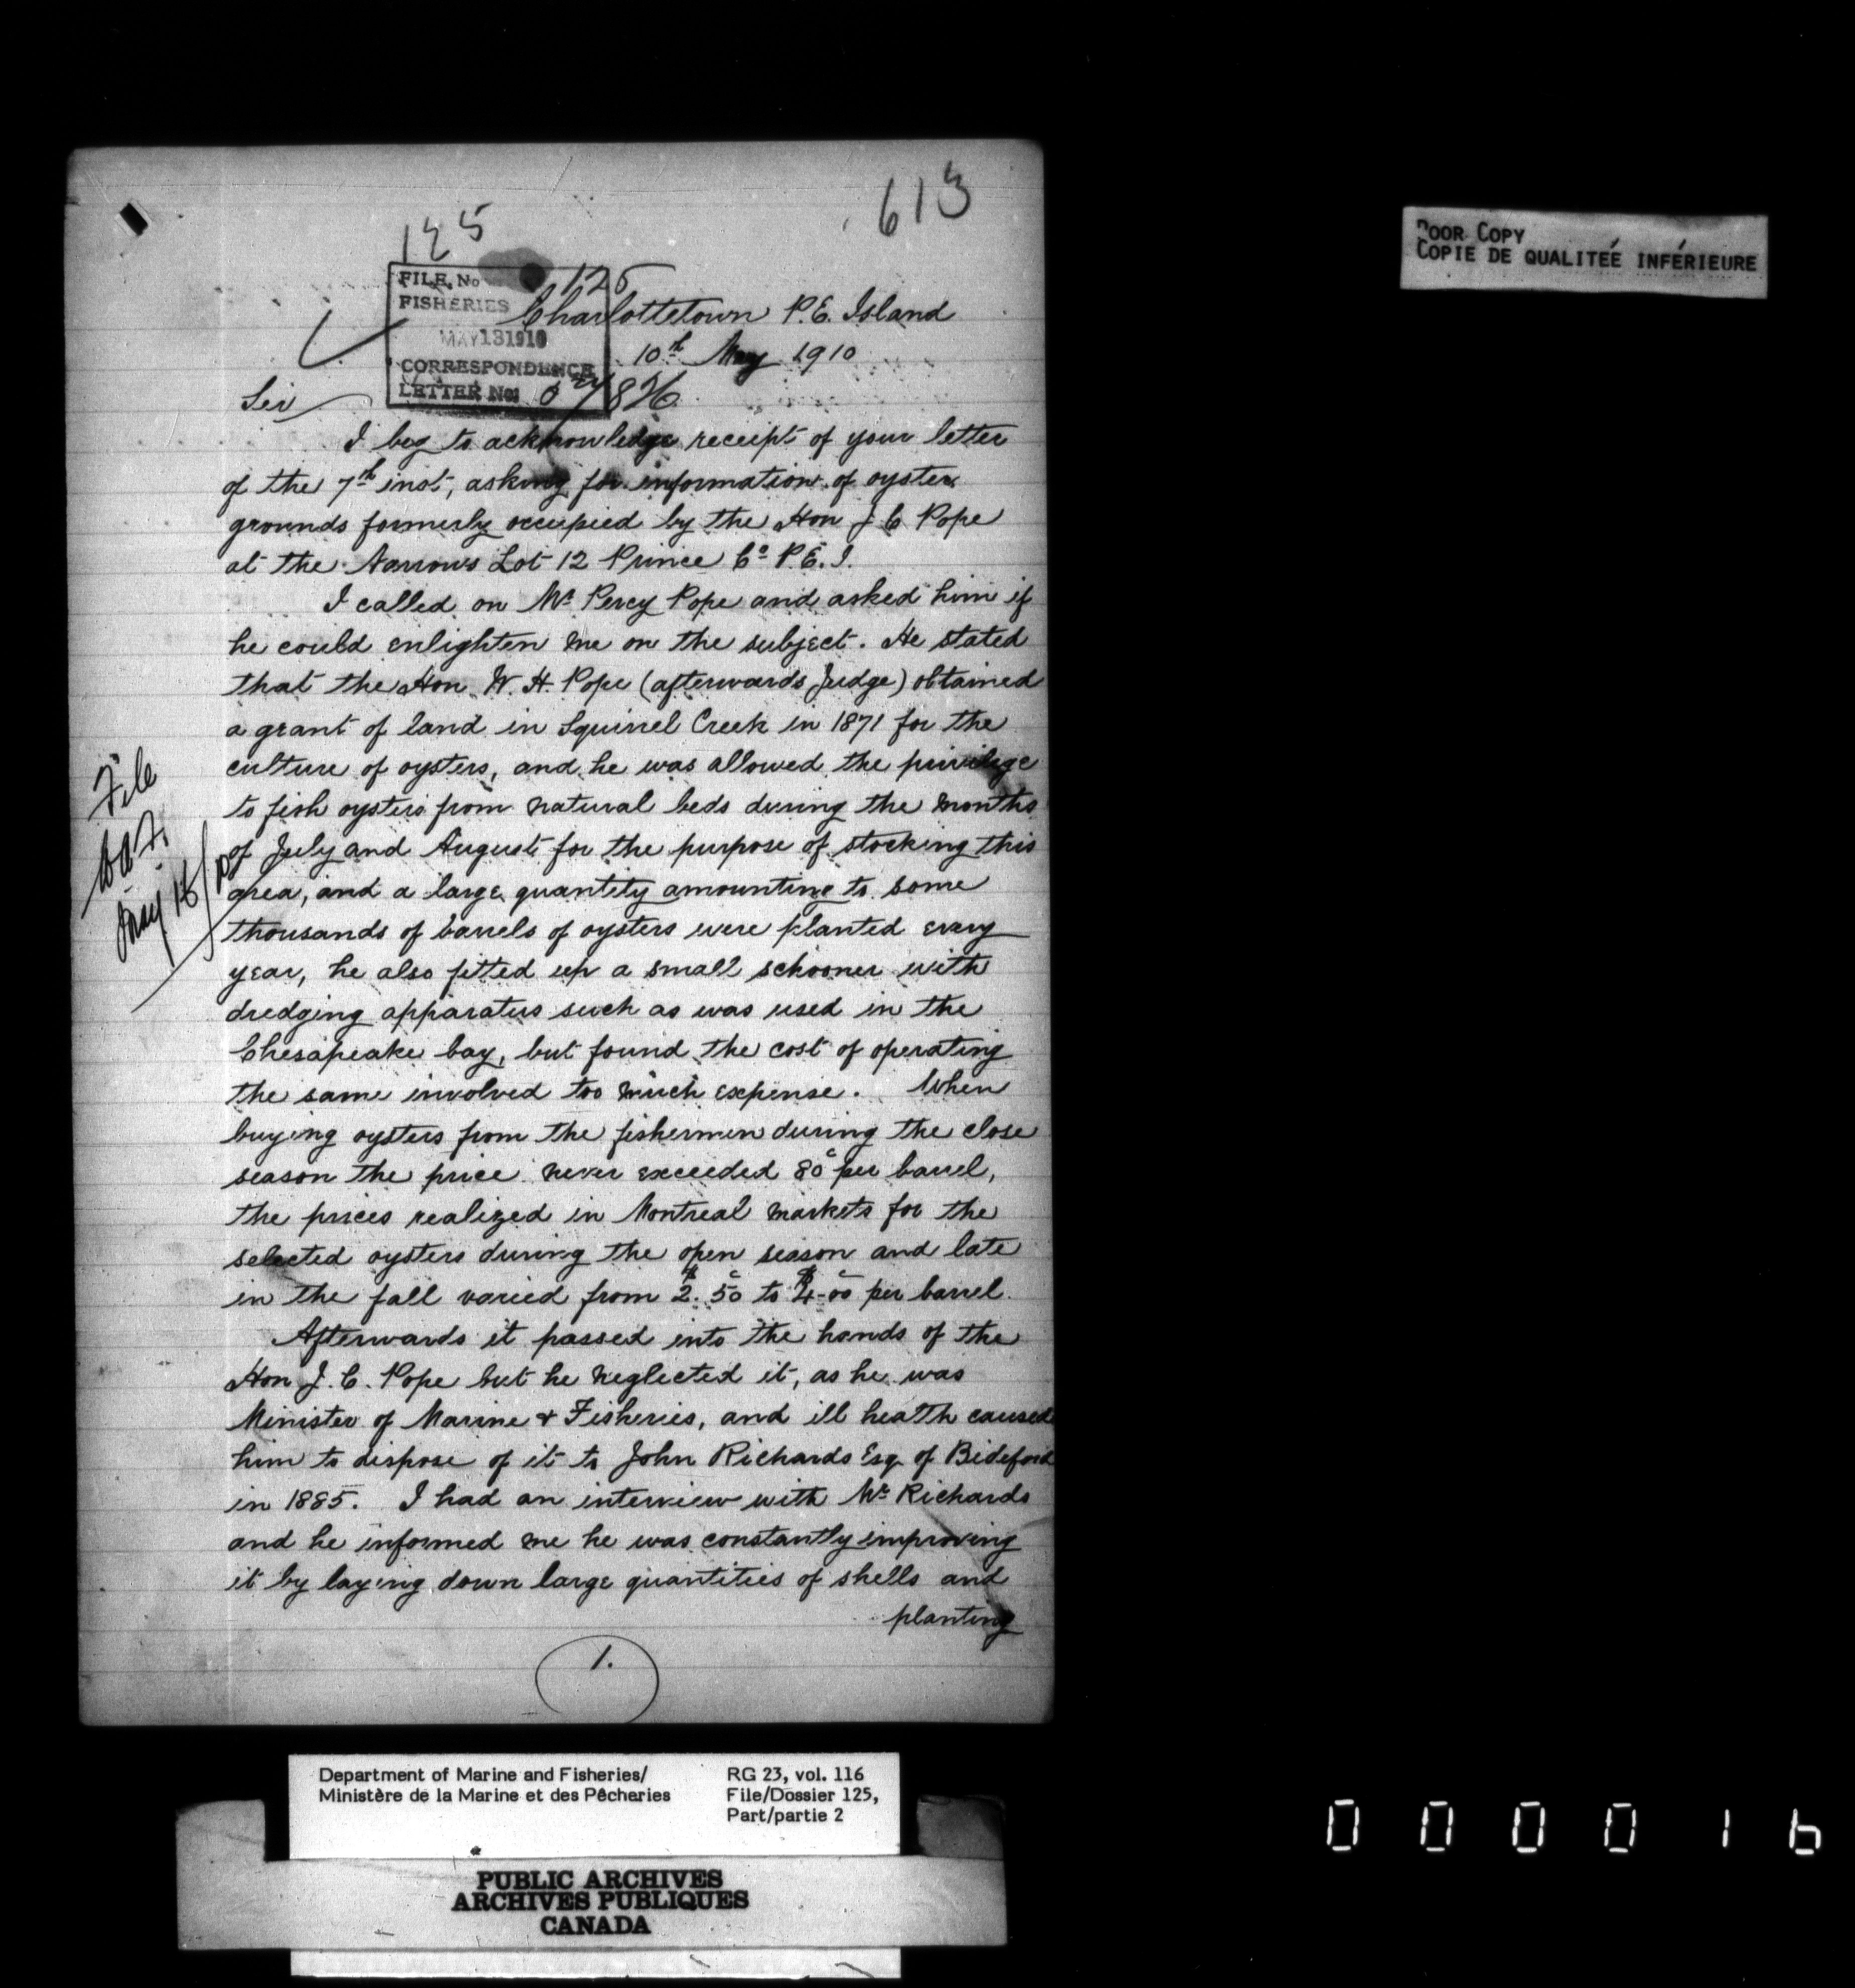 613
125
FILE No 125
FISHERIES
MAY 13 1910
CORRESPONDENCE
LETTER No.
Charlottetown P.E. Island
10th May 1910
Sir
I beg to acknowledge receipt of your letter
of the 7th inst, asking for information of oyster
grounds formerly occupied by the Hon J C Pope
at the Narrows Lot 12 Prince Co P.E.I.
I called on Mr Percy Pope and asked him if
he could enlighten me on the subject. He stated
that the Hon W. H. Pope (afterwards Judge) obtained
a grant of land in Squirrel Creek in 1871 for the
culture of oysters, and he was allowed the privilege
to fish oysters from natural beds during the months
of July and August for the purpose of stocking this
area, and a large quantity amounting to some
thousands of barrels of oysters were planted every
year, he also fitted up a small schooner with
dredging apparatus such as was used in the
Chesapeake bay, but found the cost of operating
the same involved too much expense. When
buying oysters from the fishermen during the close
season the price never exceeded 80c per barrel,
the prices realized in Montreal markets for the
selected oysters during the open season and late
in the fall varied from $2.50c to $4-00c per barrel.
Afterwards it passed into the hands of the
Hon J. C. Pope but he neglected it, as he was
Minister of Marine & Fisheries, and ill heath caused
him to dispose of it to John Richards Esq of Bideford
in 1885. I had an interview with Mr Richards
and he informed me he was constantly improving
it by laying down large quantities of shells and
planting
1.
File
May 16/10
POOR COPY
COPIE DE QUALITEÉ INFÉRIEURE
Department of Marine and Fisheries/
Ministère de la Marine et des Pêcheries
RG 23, vol. 116
File/Dossier 125,
Part/partie 2
PUBLIC ARCHIVES
ARCHIVES PUBLIQUES
CANADA
0 0 0 0 1 6